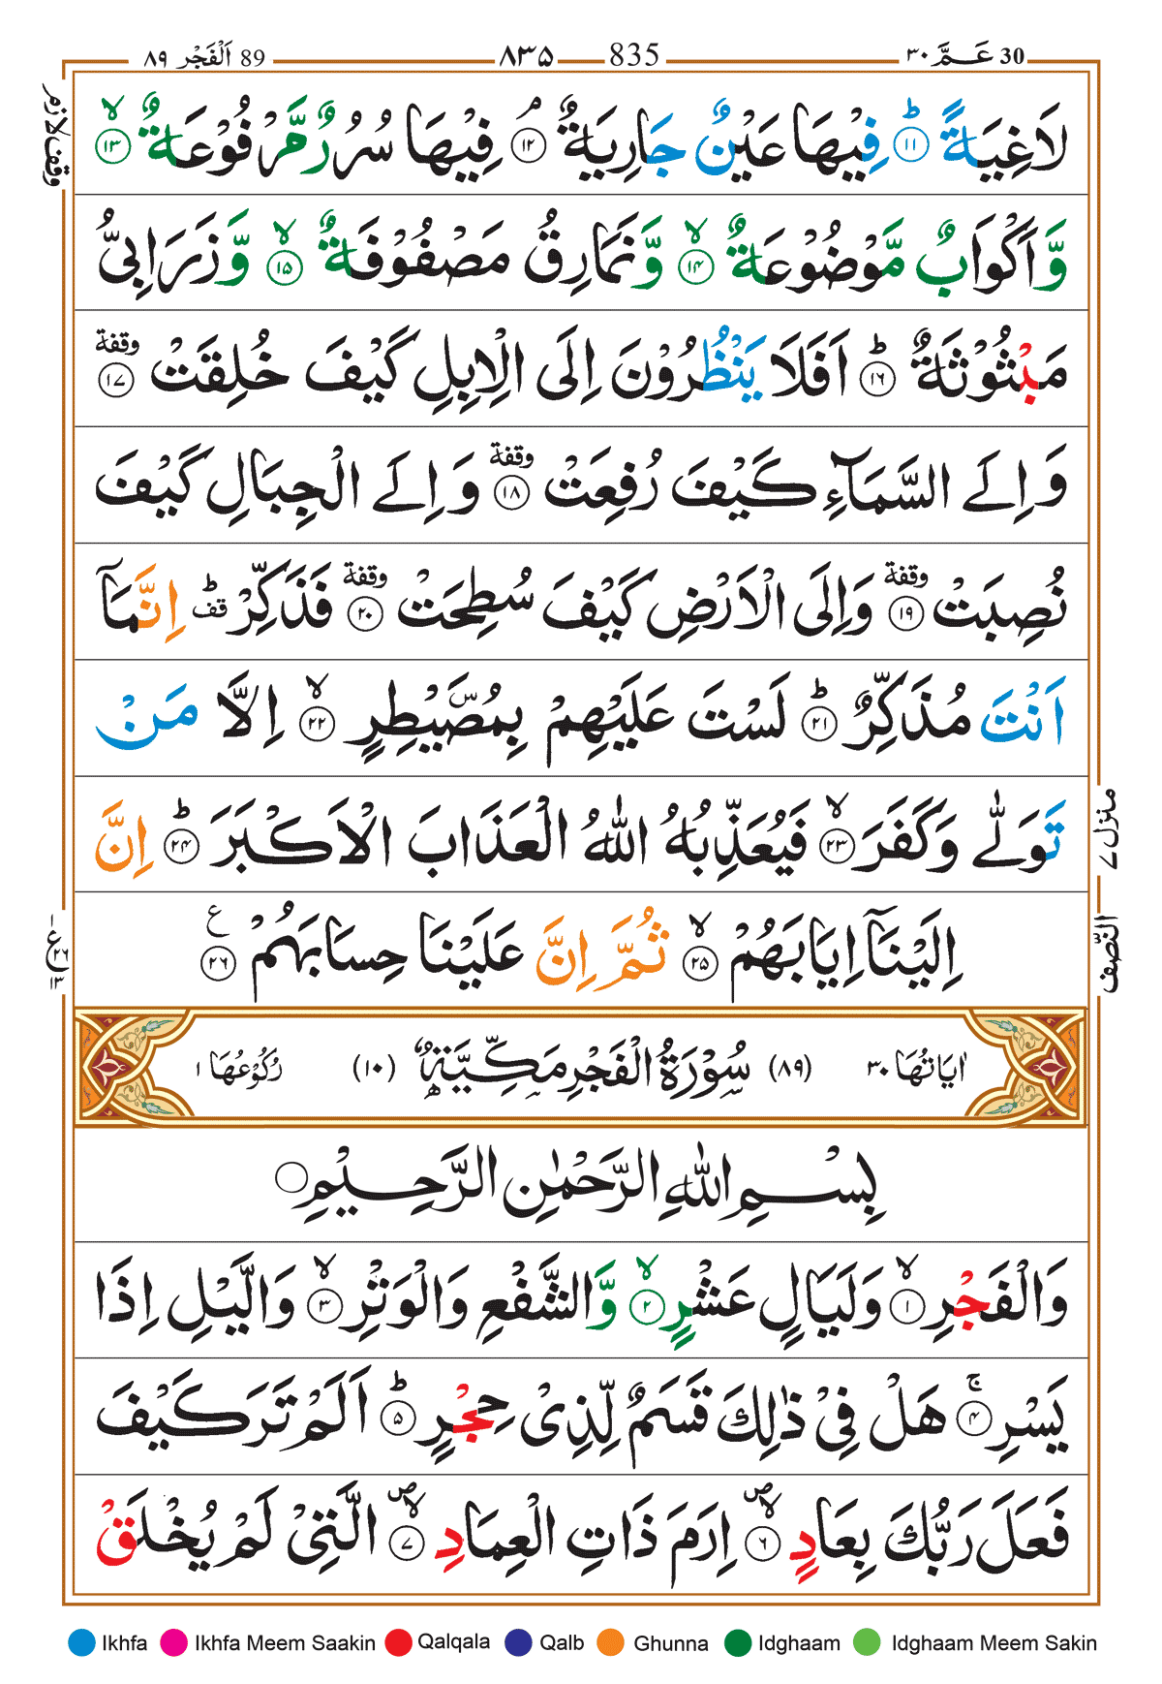 30 عَـمَّ ٣٠
835 ٨٣٥
89 اَلْفَجْر ٨٩
وقف لازم
لَاغِيَةً ؕ ١١ فِيْهَا عَيْنٌ جَارِيَةٌ ۘ ١٢ فِيْهَا سُرُرٌ مَّرْفُوْعَةٌ ۙ ١٣
وَّاَكْوَابٌ مَّوْضُوْعَةٌ ۙ ١٤ وَّنَمَارِقُ مَصْفُوْفَةٌ ۙ ١٥ وَّزَرَابِىُّ
مَبْثُوْثَةٌ ؕ ١٦ اَفَلَا يَنْظُرُوْنَ اِلَى الْاِبِلِ كَيْفَ خُلِقَتْ وقفة ١٧
وَاِلَى السَّمَآءِ كَيْفَ رُفِعَتْ وقفة ١٨ وَاِلَى الْجِبَالِ كَيْفَ
نُصِبَتْ وقفة ١٩ وَاِلَى الْاَرْضِ كَيْفَ سُطِحَتْ وقفة ٢٠ فَذَكِّرْ ؕ قف اِنَّمَآ
اَنْتَ مُذَكِّرٌ ؕ ٢١ لَسْتَ عَلَيْهِمْ بِمُصَۜيْطِرٍ ۙ ٢٢ اِلَّا مَنْ
تَوَلّٰى وَكَفَرَ ۙ ٢٣ فَيُعَذِّبُهُ اللّٰهُ الْعَذَابَ الْاَكْبَرَ ؕ ٢٤ اِنَّ
اِلَيْنَآ اِيَابَهُمْ ۙ ٢٥ ثُمَّ اِنَّ عَلَيْنَا حِسَابَهُمْ ع ٢٦
منزل ٧
النصف
ع ٢٦
اٰيَاتُهَا ٣٠ (٨٩) سُوْرَةُ الْفَجْرِ مَكِّيَّةٌ (١٠) رُكُوْعُهَا ١
بِسْمِ اللّٰهِ الرَّحْمٰنِ الرَّحِيْمِ
وَالْفَجْرِ ۙ ١ وَلَيَالٍ عَشْرٍ ۙ ٢ وَّالشَّفْعِ وَالْوَتْرِ ۙ ٣ وَالَّيْلِ اِذَا
يَسْرِ ۚ ٤ هَلْ فِىْ ذٰلِكَ قَسَمٌ لِّذِىْ حِجْرٍ ؕ ٥ اَلَمْ تَرَ كَيْفَ
فَعَلَ رَبُّكَ بِعَادٍ ۙ ص ٦ اِرَمَ ذَاتِ الْعِمَادِ ۙ ص ٧ الَّتِىْ لَمْ يُخْلَقْ
Ikhfa Ikhfa Meem Saakin Qalqala Qalb Ghunna Idghaam Idghaam Meem Sakin